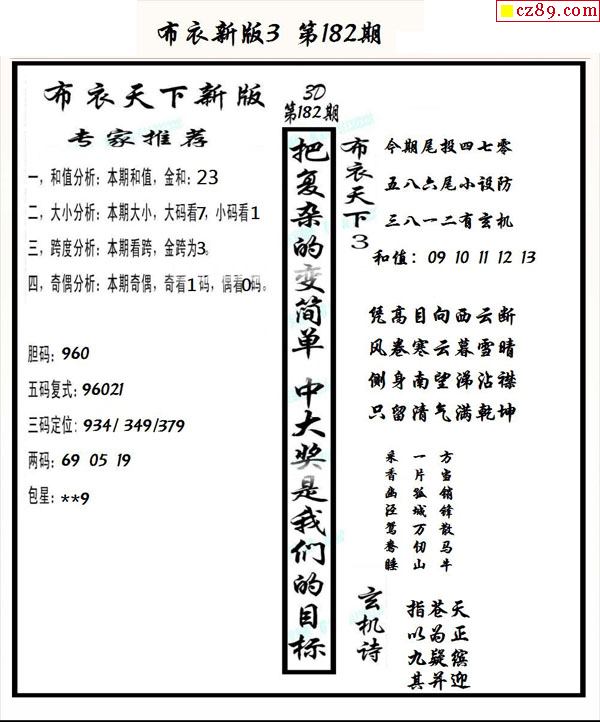 cz89.com
布衣新版3 第182期
布衣天下新版
专家推荐
一，和值分析：本期和值，金和：23
二，大小分析：本期大小，大码看7，小码看1
三，跨度分析：本期看跨，金跨为3。
四，奇偶分析：本期奇偶，奇看1码，偶看0码。
胆码：960
五码复式：96021
三码定位：934/ 349/379
两码：69 05 19
包星：**9
3D
第182期
把复杂的变简单 中大奖是我们的目标
布衣天下3
今期尾投四七零
五八六尾小设防
三八一二有玄机
和值：09 10 11 12 13
凭高目向西云断
风卷寒云暮雪晴
侧身南望涕沾襟
只留清气满乾坤
采香幽泾鸳鸯睡
一片孤城万仞山
方当销锋散马牛
玄机诗
指苍天
以为正
九疑缤
其并迎